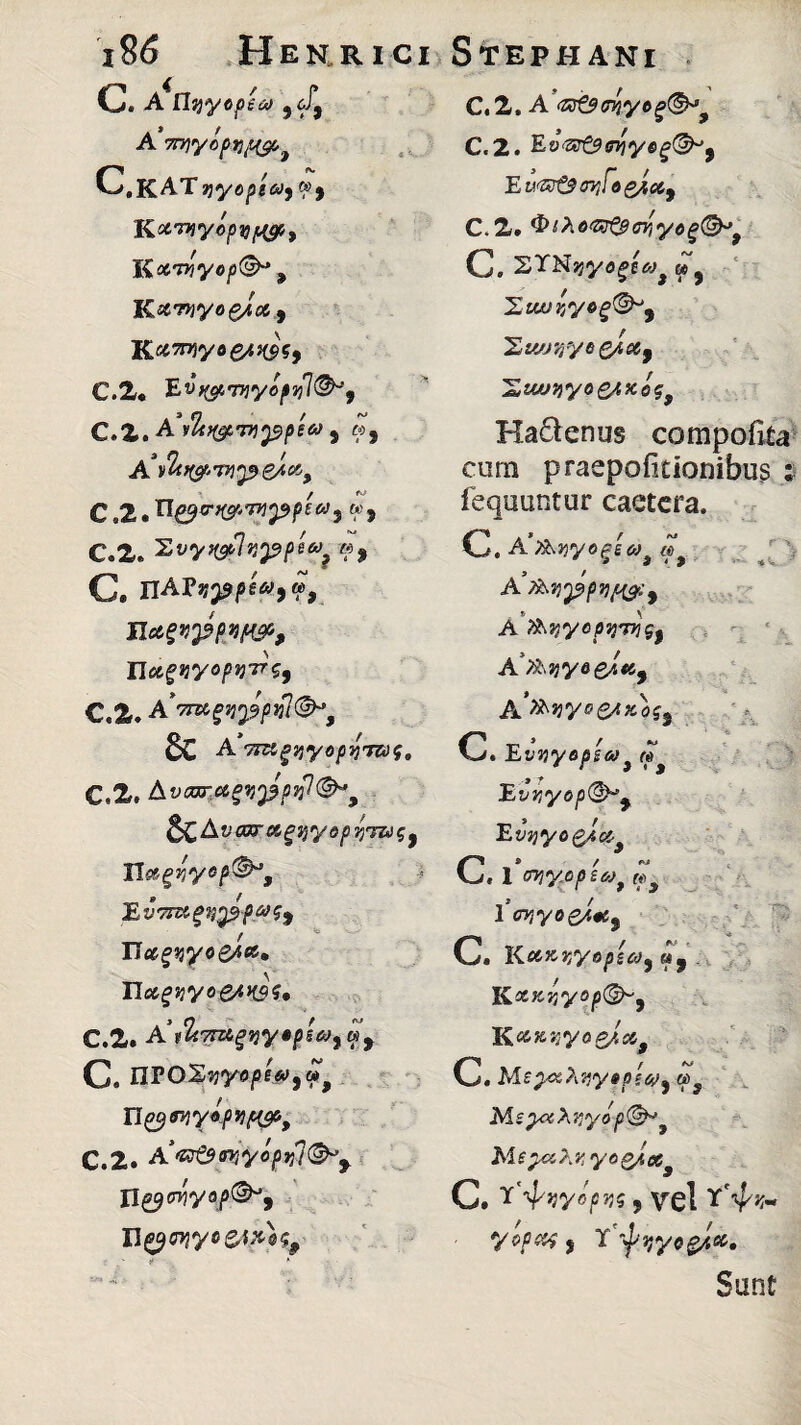 186 HENRICI STEPHANI
C. Ἀπηγορέω, ῶ,
Ἀπηγόρημα,
C. ΚΑΤηγορέω, ῶ,
Κατηγόρημα,
Κατήγορος,
Κατηγορία,
Κατηγορικός,
C.2. Εὐκατηγόρητος,
C.2. Ἀντικατηγορέω, ῶ,
Ἀντικατηγορία,
C.2. Προσκατηγορέω, ῶ,
C.2. Συγκατηγορέω, ῶ,
C. ΠΑΡηγορέω, ῶ,
Παρηγόρημα,
Παρηγορητὴς,
C.2. Ἀπαρηγόρητος,
& Ἀπαρηγορήτως.
C.2. Δυσπαρηγόρητος,
& Δυσπαρηγορήτως,
Παρήγορος,
Εὐπαρηγόρως,
Παρηγορία.
Παρηγορικός.
C.2. Ἀντιπαρηγορέω, ῶ,
C. ΠΡΟΣηγορέω, ῶ,
Προσηγόρημα,
C.2. Ἀπροσηγόρητος,
Προσήγορος,
Προσηγορικὸς,
C.2. Ἀπροσήγορος,
C.2. Εὐπροσήγορος,
Εὐπροσηγορία,
C.2. Φιλοπροσήγορος,
C. ΣΥΝηγορέω, ῶ,
Συνήγορος,
Συνηγορία,
Συνηγορικός,
Hactenus composita
cum praepositionibus:
sequuntur caetera.
C. Ἀλληγορέω, ῶ,
Ἀλληγόρημα,
Ἀλληγορητὴς,
Ἀλληγορία,
Ἀλληγορικὸς,
C. Εὐηγορέω, ῶ,
Εὐήγορος,
Εὐηγορία,
C. Ἰσηγορέω, ῶ,
Ἰσηγορία,
C. Κακηγορέω, ῶ,
Κακήγορος,
Κακηγορία,
C. Μεγαληγορέω, ῶ,
Μεγαληγόρος,
Μεγαληγορία,
C. Ὑψηγόρης, vel Ὑψη-
γόρας, Ὑψηγορία.
Sunt